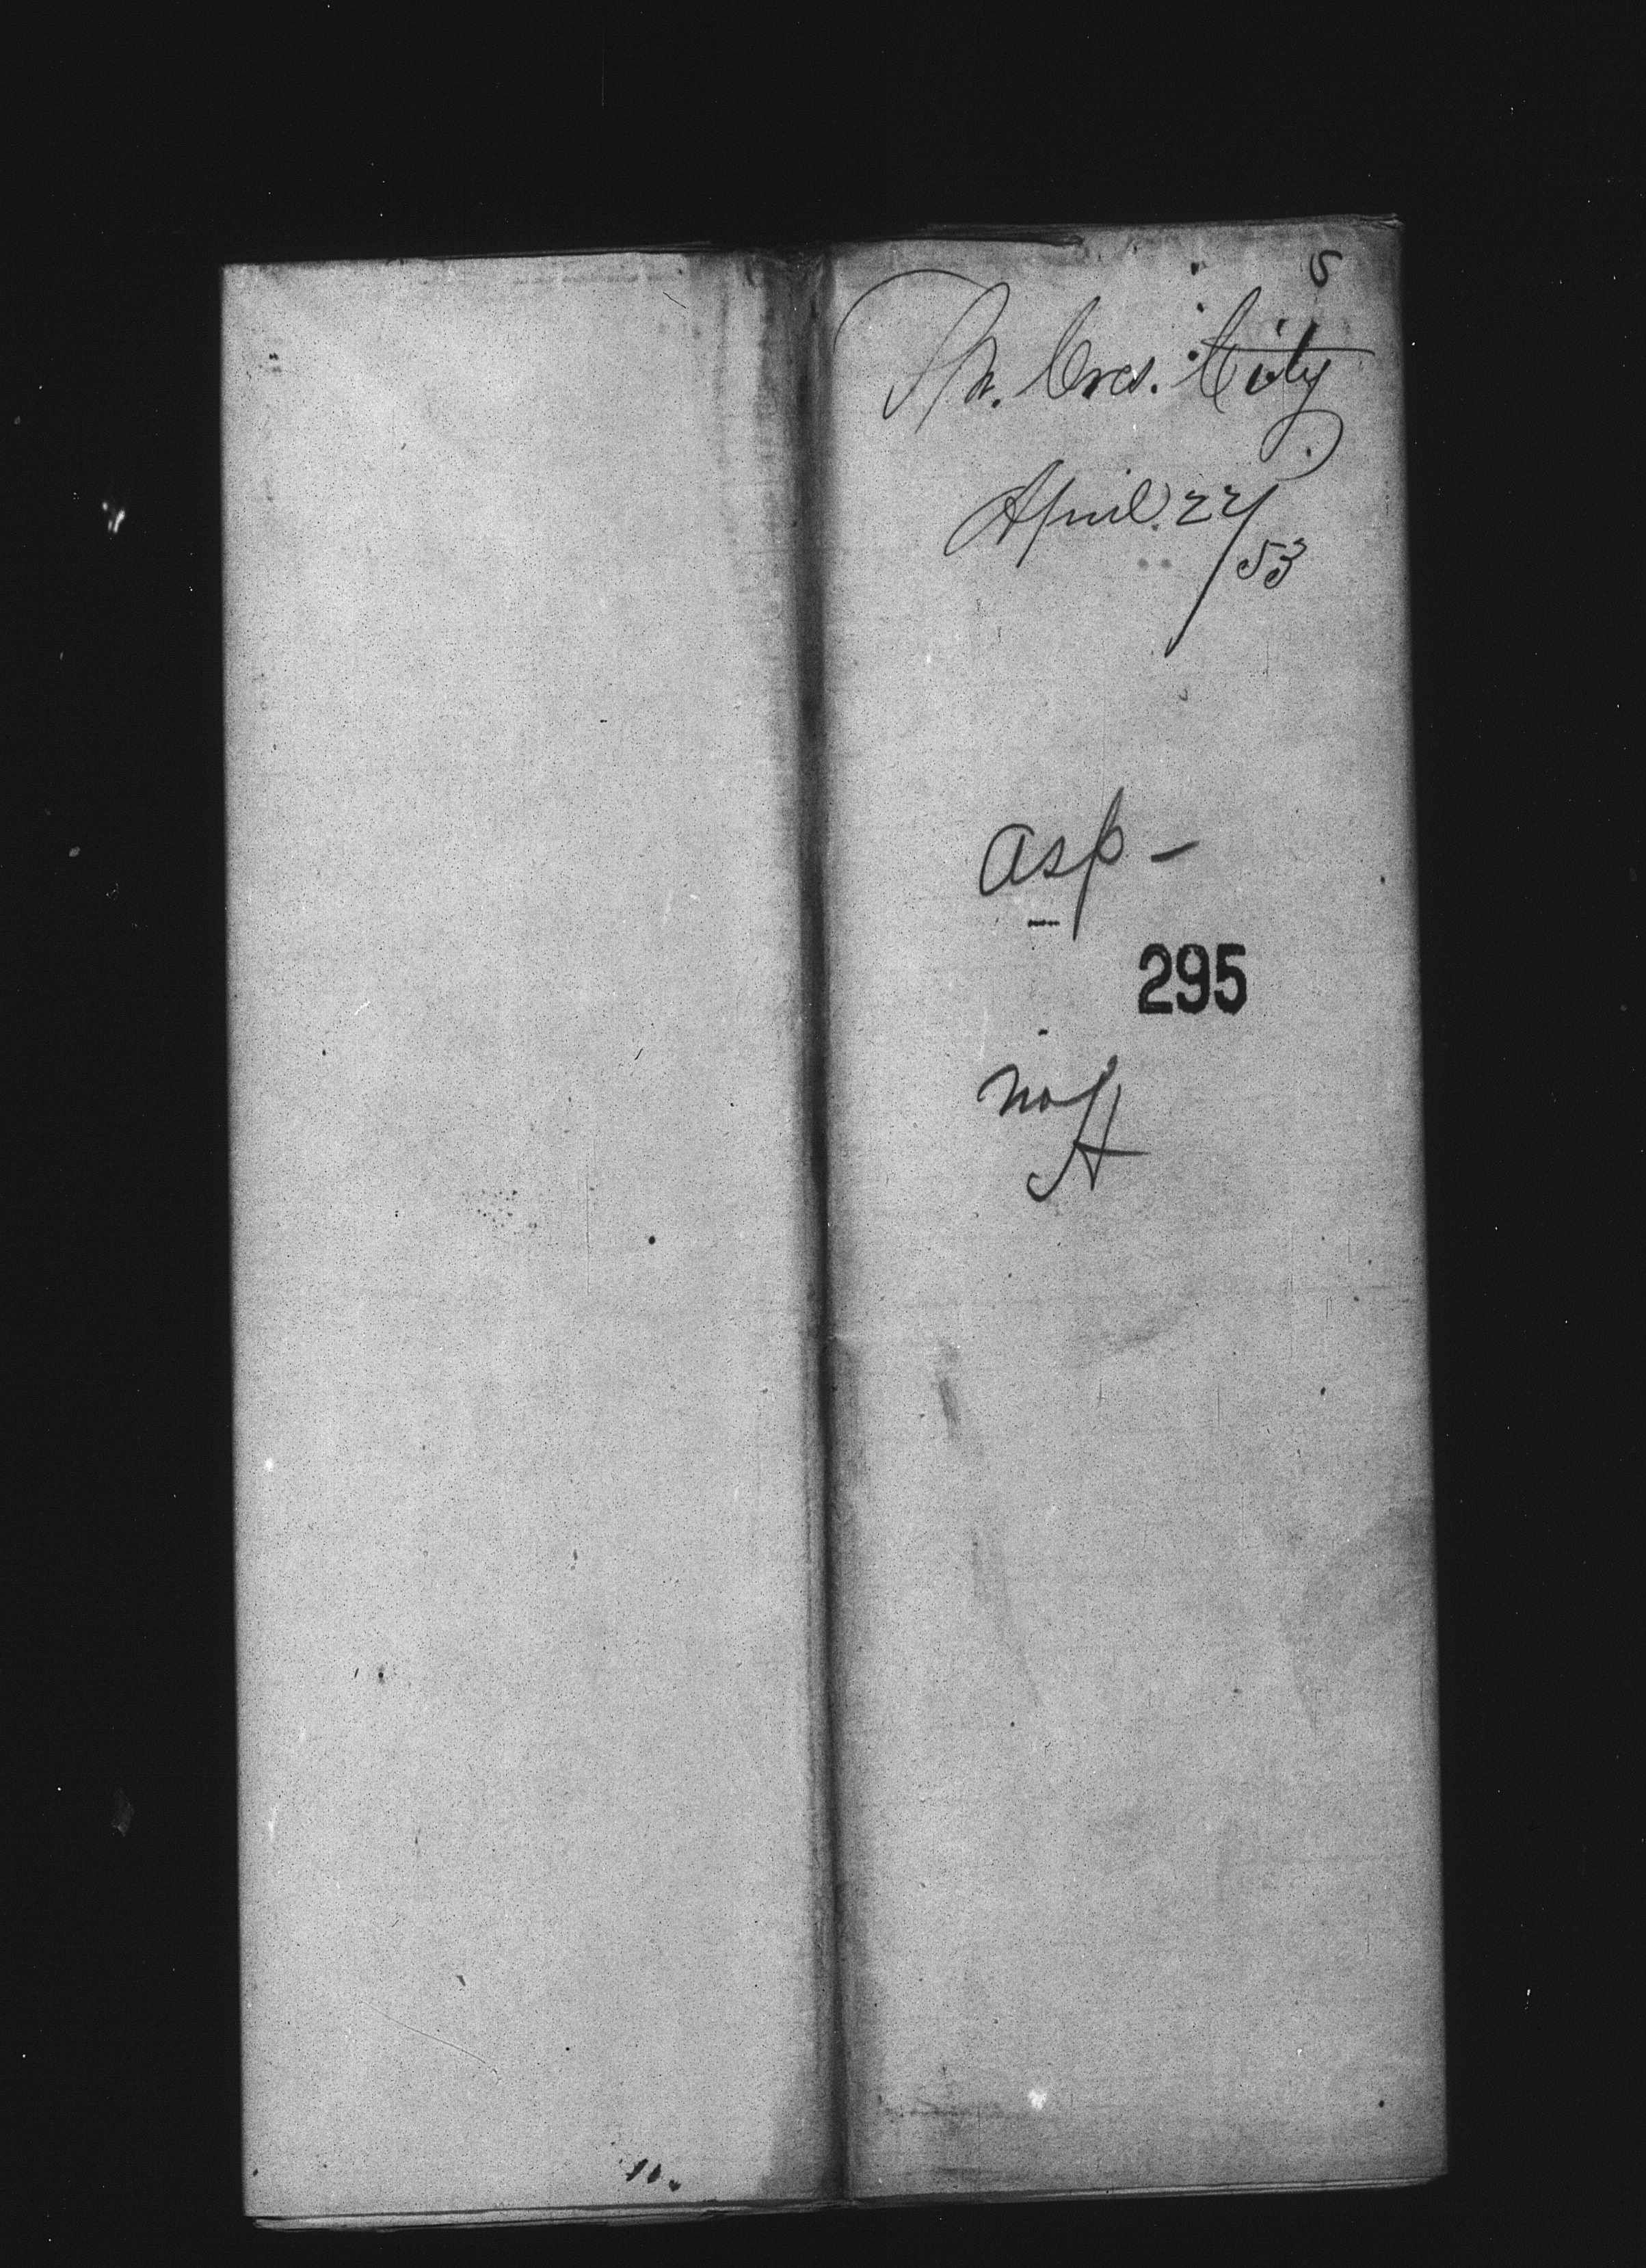 5
Str. Cres. City
April. 22/53
asp-
295
No H